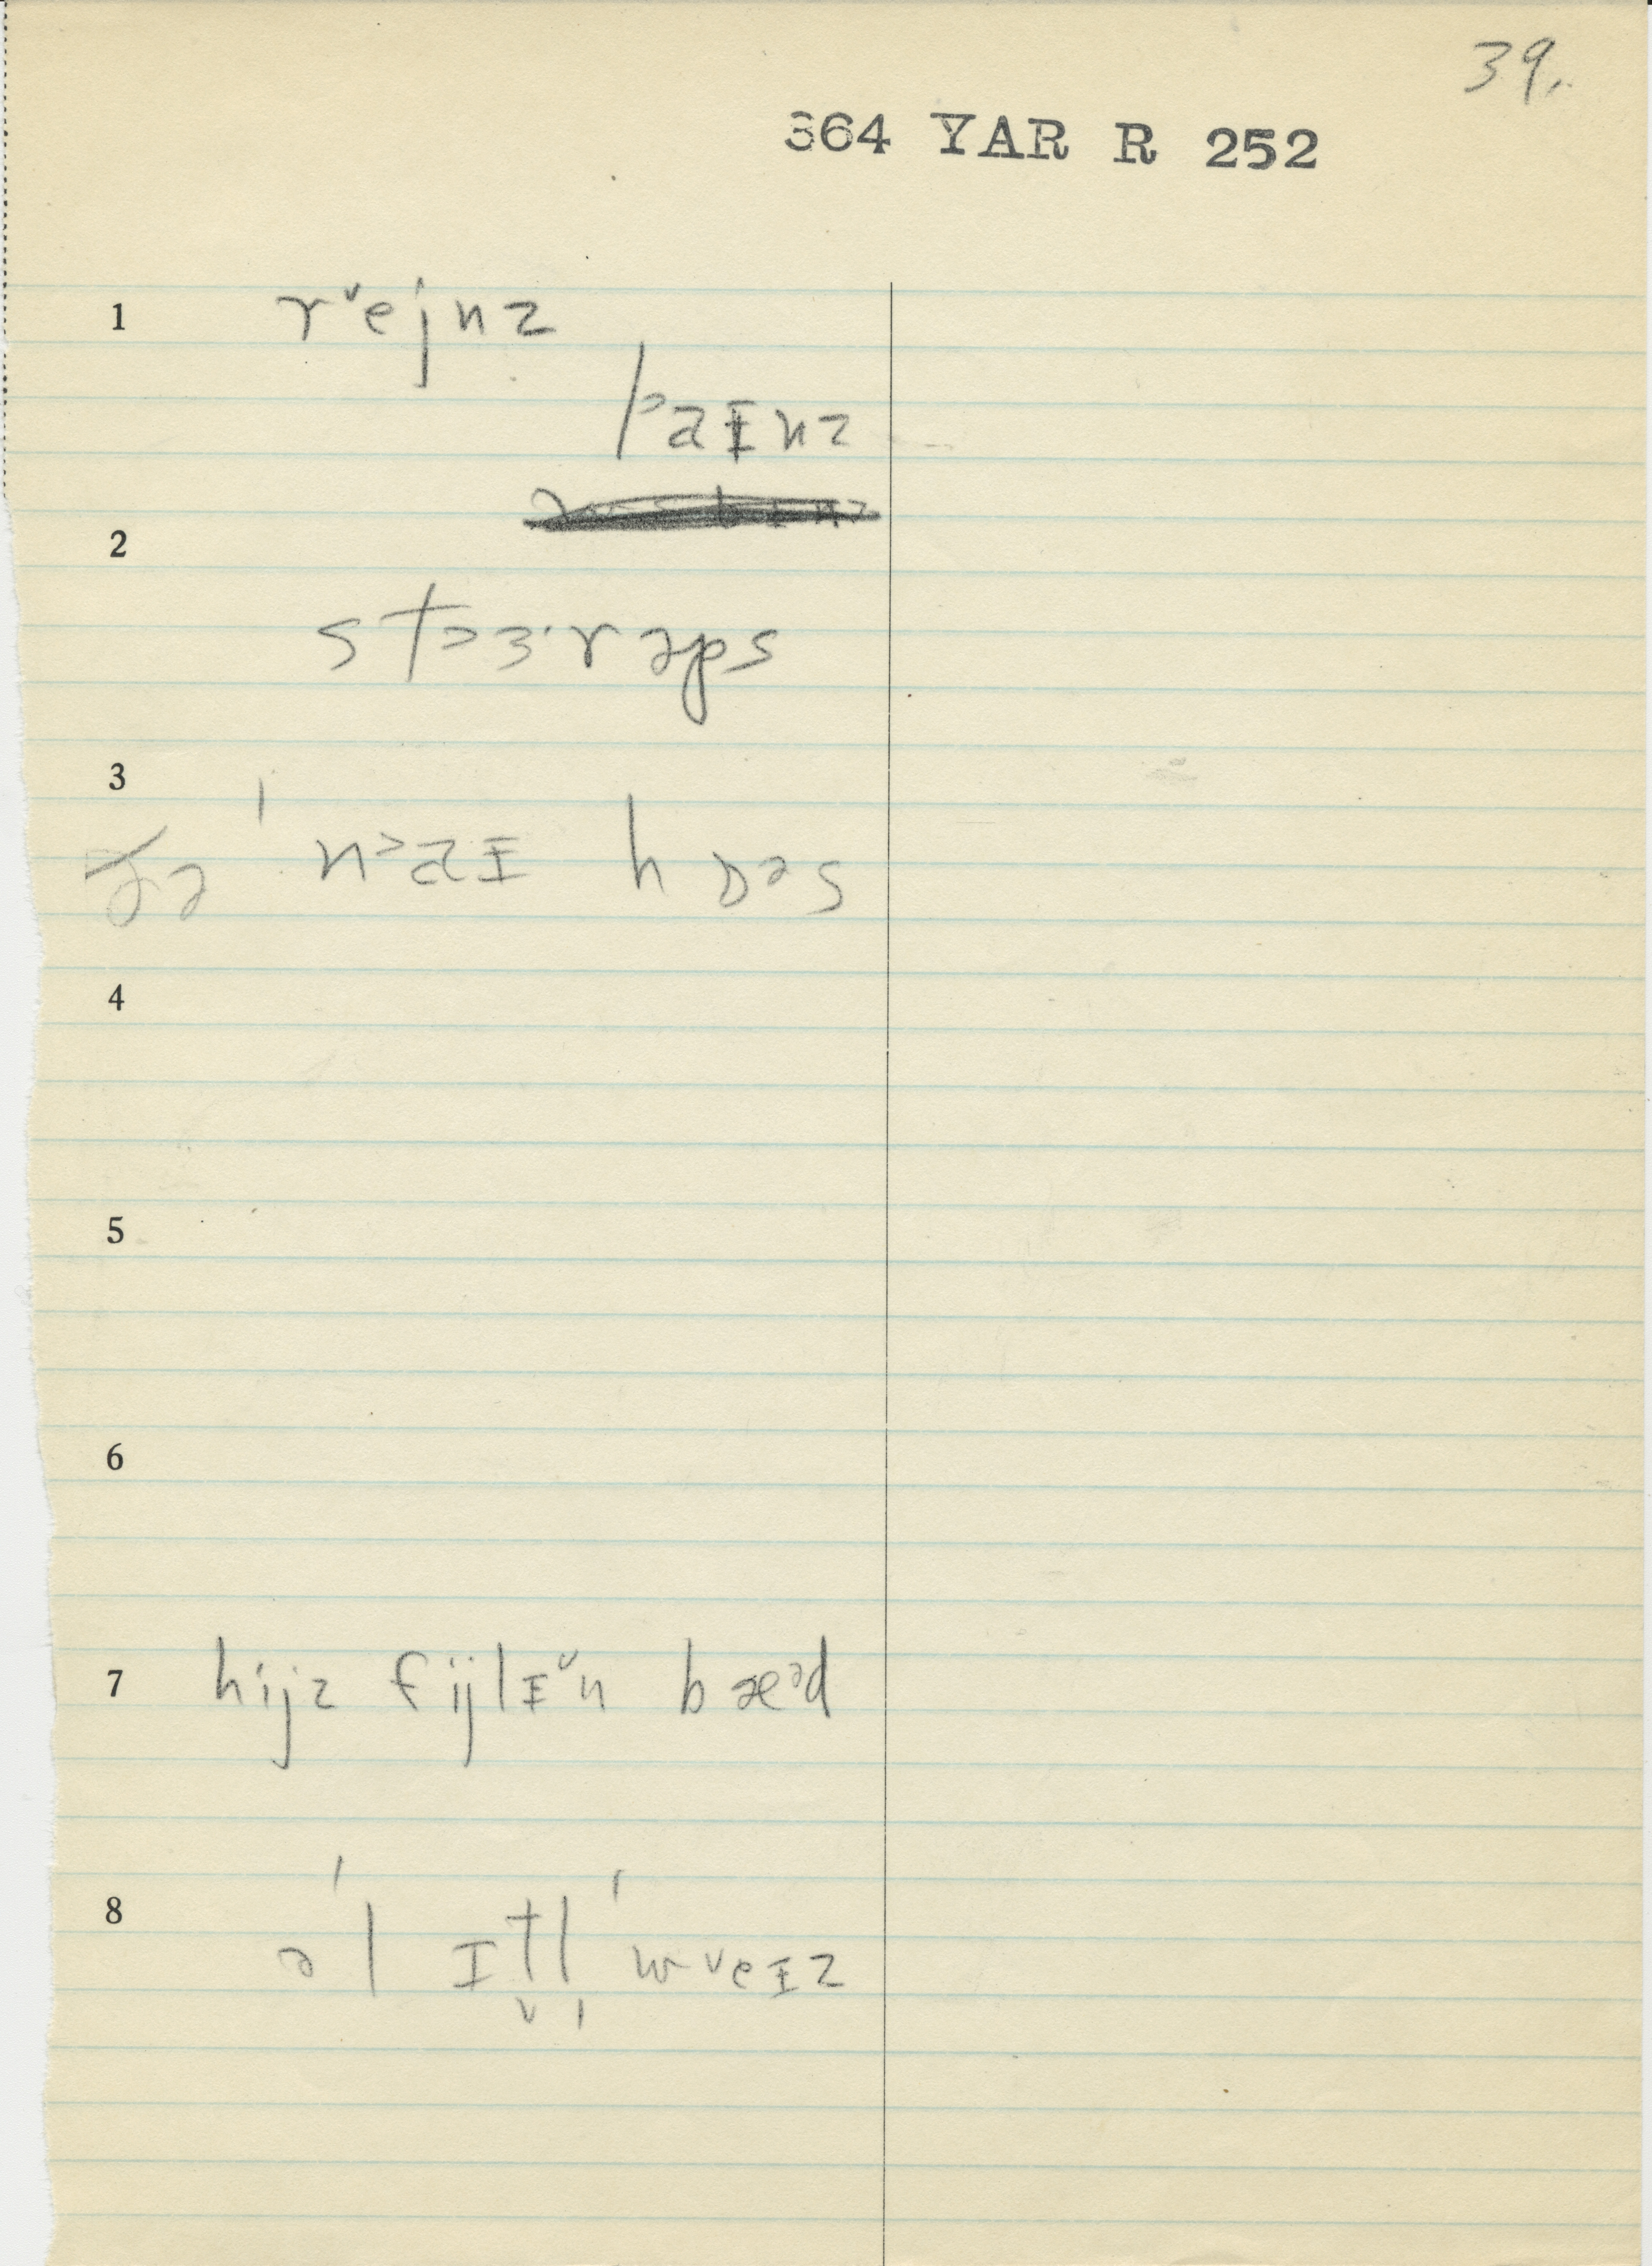 39.
364 YAR R 252
1 r˅ejnz
p˃aɪnz
2
st˃ɜ·rəps
3
ðə ˈn˃aɪ hɒəs
4
5
6
7 hijz fijlɪ˅n bæᵊd
8 əˈl ɪt̬l̩ ˈw˅eɪz